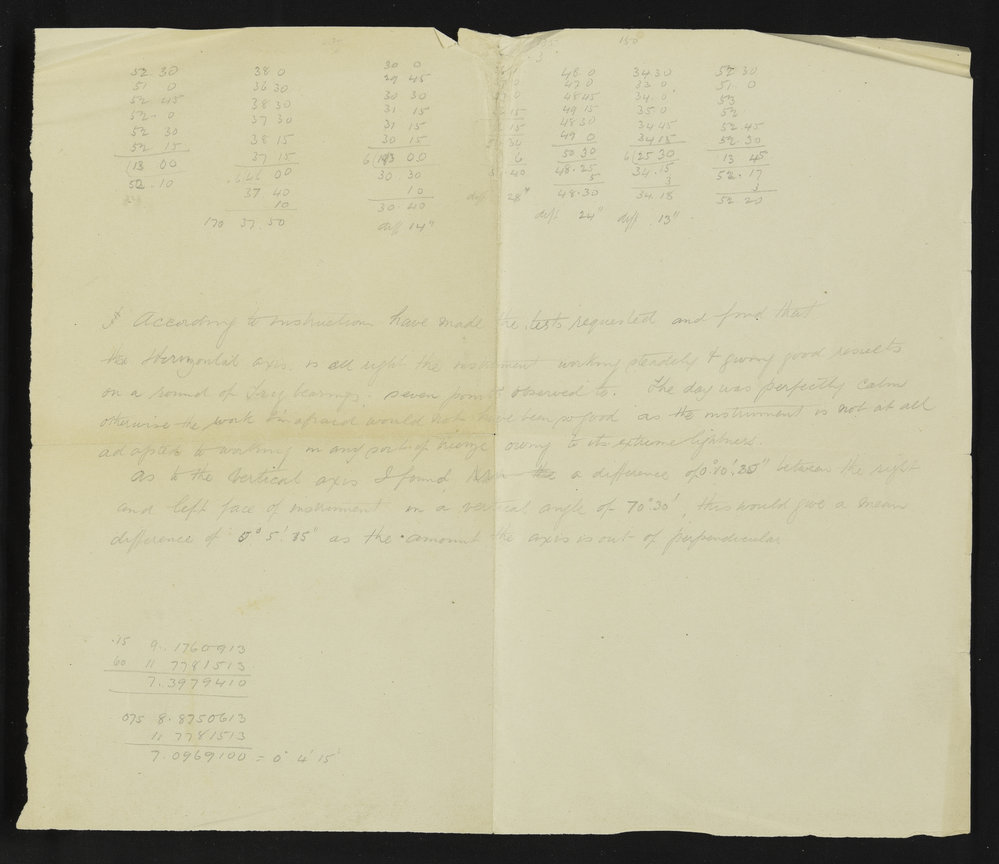 150
52 30 38 0 30 0 48 0 34 30 52 30
51 0 36 30 29 45 47 0 33 0 51 0
52 45 38 30 30 30 48 45 34 0 53
52 0 37 30 31 15 49 15 35 0 52
52 30 38 15 31 15 15 48 30 34 45 52 45
52 15 37 15 30 15 49 0 34 15 52 30
13 00 6(46 00 6(13 00 50 30 6(25 30 13 45
52.10 37 40 30.30 40 48.25 34.15 52.17
10 10 28" 5 3 3
170 37.50 30.40 48.30 34.18 52 20
diff 14" diff 24" diff 13"
I According to instructions have made the tests requested and find that
the Horizontal axis is all right the instrument working steadily & giving good results
on a round of Trig bearings. seven points observed to. The day was perfectly calm
otherwise the work I'm afraid would not have been so good as the instrument is not at all
adapted to working in any sort of breeze owing to its extreme lightness.
As to the Vertical axis I found a difference of 0°.10'.30" between the right
and left face of instrument in a vertical angle of 70°30', this would give a mean
difference of 0° 5'.15" as the amount the axis is out of perpendicular
.15 9.1760913
60 11 7781513
7.3979410
075 8.8750613
11 7781513
7.0969100 = 0° 4' 15"